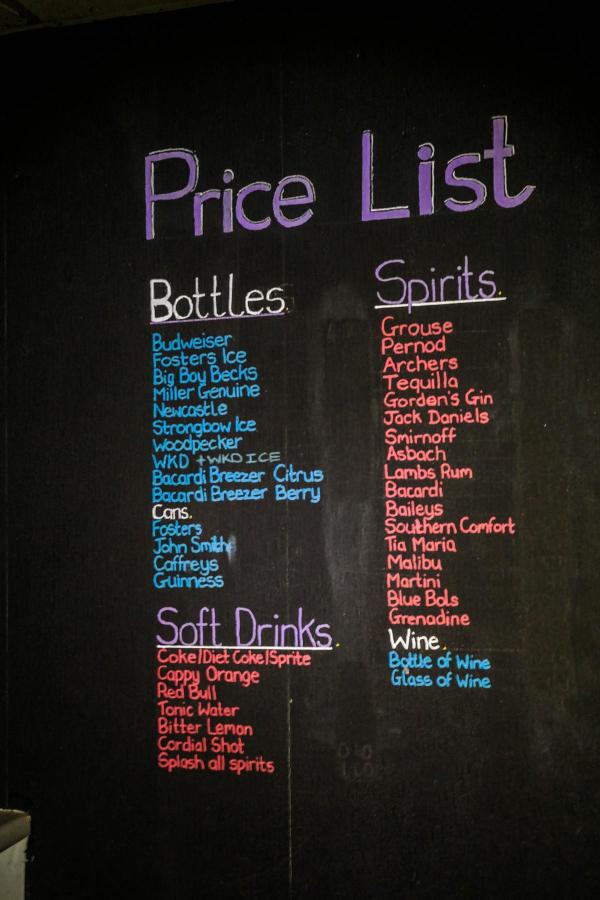 Price List
Bottles
Budweiser
Fosters Ice
Big Boy Becks
Miller Genuine
Newcastle
Strongbow Ice
Woodpecker
WKD + WKD ICE
Bacardi Breezer Citrus
Bacardi Breezer Berry
Cans.
Fosters
John Smiths
Caffreys
Guinness
Soft Drinks.
Coke/Diet Coke/Sprite
Cappy Orange
Red Bull
Tonic Water
Bitter Lemon
Cordial Shot
Splash all spirits
Spirits.
Grouse
Pernod
Archers
Tequilla
Gorden's Gin
Jack Daniels
Smirnoff
Asbach
Lambs Rum
Bacardi
Baileys
Southern Comfort
Tia Maria
Malibu
Martini
Blue Bols
Grenadine
Wine.
Bottle of Wine
Glass of Wine